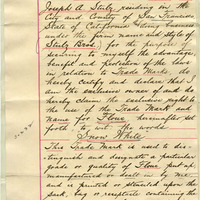 Joseph A. Stulz residing in the
City and County of San Francisco
State of California doing business
under the firm name and style of
Stulz Bros. for the purpose of
securing to myself the advantage
benefit and protection of the laws
in relation to Trade Marks, do
hereby certify and declare that I
am the exclusive owner of and do
hereby claim the exclusive right to
the use of the Trade Mark and
name for Flour hereinafter set
forth to wit the words
Snow White
This Trade Mark is used to dis-
tinguish and designate a particular
grade or quality of Flour, put up
manufactured or dealt in by me
and is printed or stenciled upon the
pack, bag or receptacle containing the